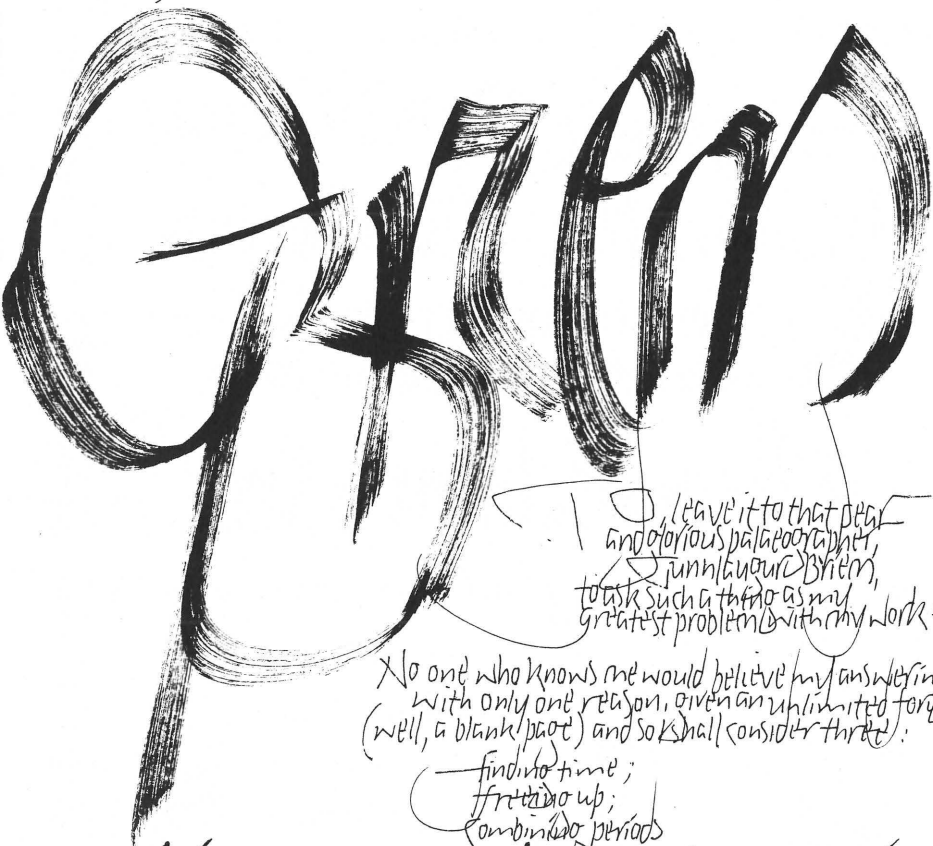 Briem
To, leave it to that dear
and glorious palaeographer,
Gunnlaugur Briem,
to ask such a thing as my
greatest problem with my work.
No one who knows me would believe my answering
with only one reason, given an unlimited
(well, a blank page) and so I shall consider three:
finding time;
freeing up;
combining periods